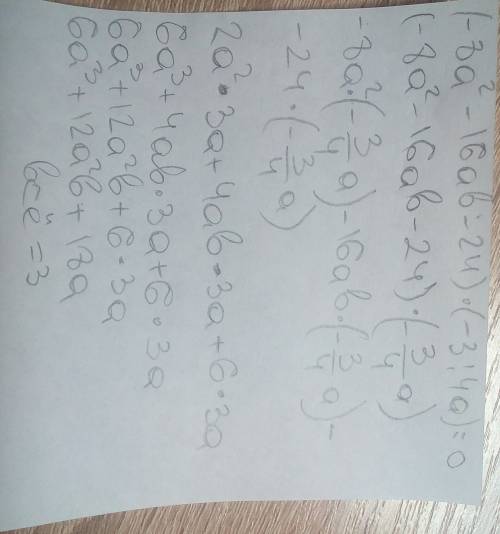 (-8a² - 16ab - 24) · (-3/4a) = 0
(-8a² - 16ab - 24) · (-3/4 a)
-8a² · (-3/4 a) - 16ab · (-3/4 a) -
- 24 · (-3/4 a)
2a² · 3a + 4ab · 3a + 6 · 3a
6a³ + 4ab · 3a + 6 · 3a
6a³ + 12a²b + 6 · 3a
6a³ + 12a²b + 18a
всё =3